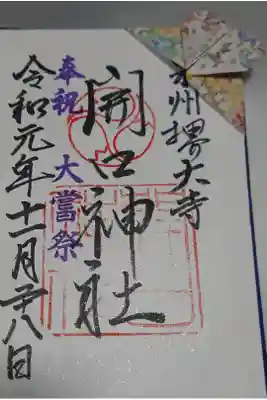 泉州堺大寺
開口神社
奉祝 大嘗祭
令和元年十一月廿八日